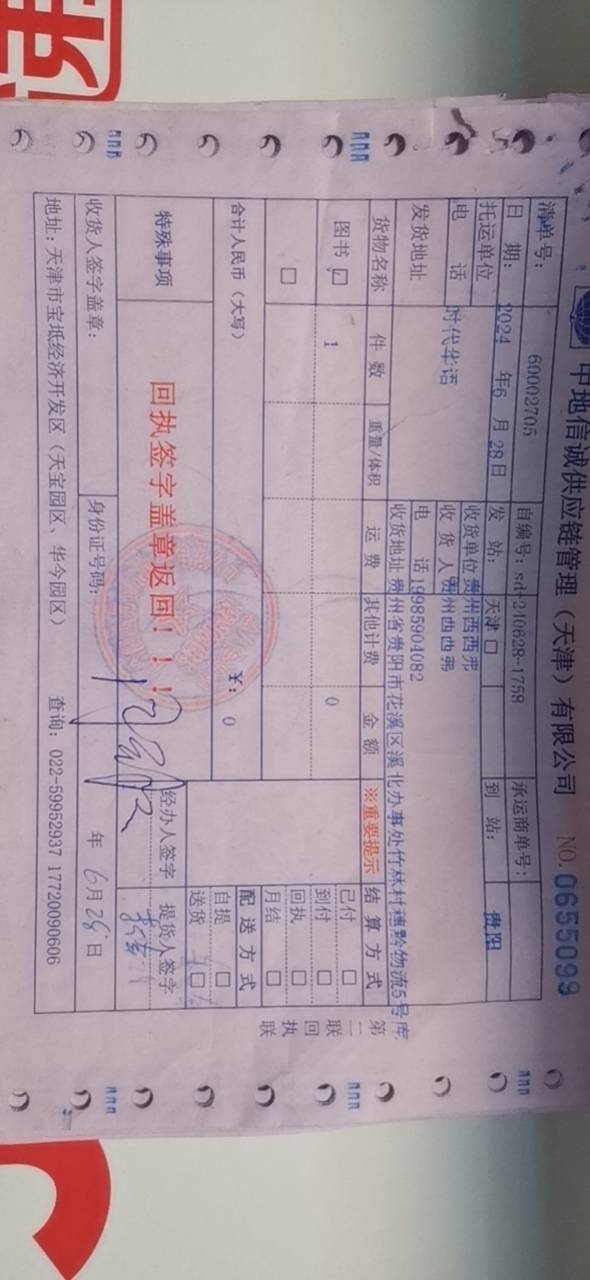 中地信诚供应链管理（天津）有限公司 NO. 0655099
清单号： 60002705 自编号：sd-240628-1758 承运商单号：
日 期： 2024 年6 月 28日 发 站： 天津□ 到 站： 贵阳
托运单位 收货单位 贵州西西弗
电 话 时代华语 收 货 人 贵州西西弗
电 话 19985904082
发货地址 收货地址 贵州省贵阳市花溪区溪北办事处竹林村穗黔物流5号库
货物名称 件 数 重量/体积 运 费 其他计费 金 额 ※重要提示 结 算 方 式
图书☑ 1 0
□
已付 □
到付 □
回执 □
月结 □
合计人民币（大写） ¥： 0
配 送 方 式
自提 □
送货 □
特殊事项 回执签字盖章返回！！！ 经办人签字 提货人签字
收货人签字盖章： 身份证号码： 年 6月28日
地址：天津市宝坻经济开发区（天宝园区、华今园区） 查询：022-59952937 17720090606
第二联 回执联